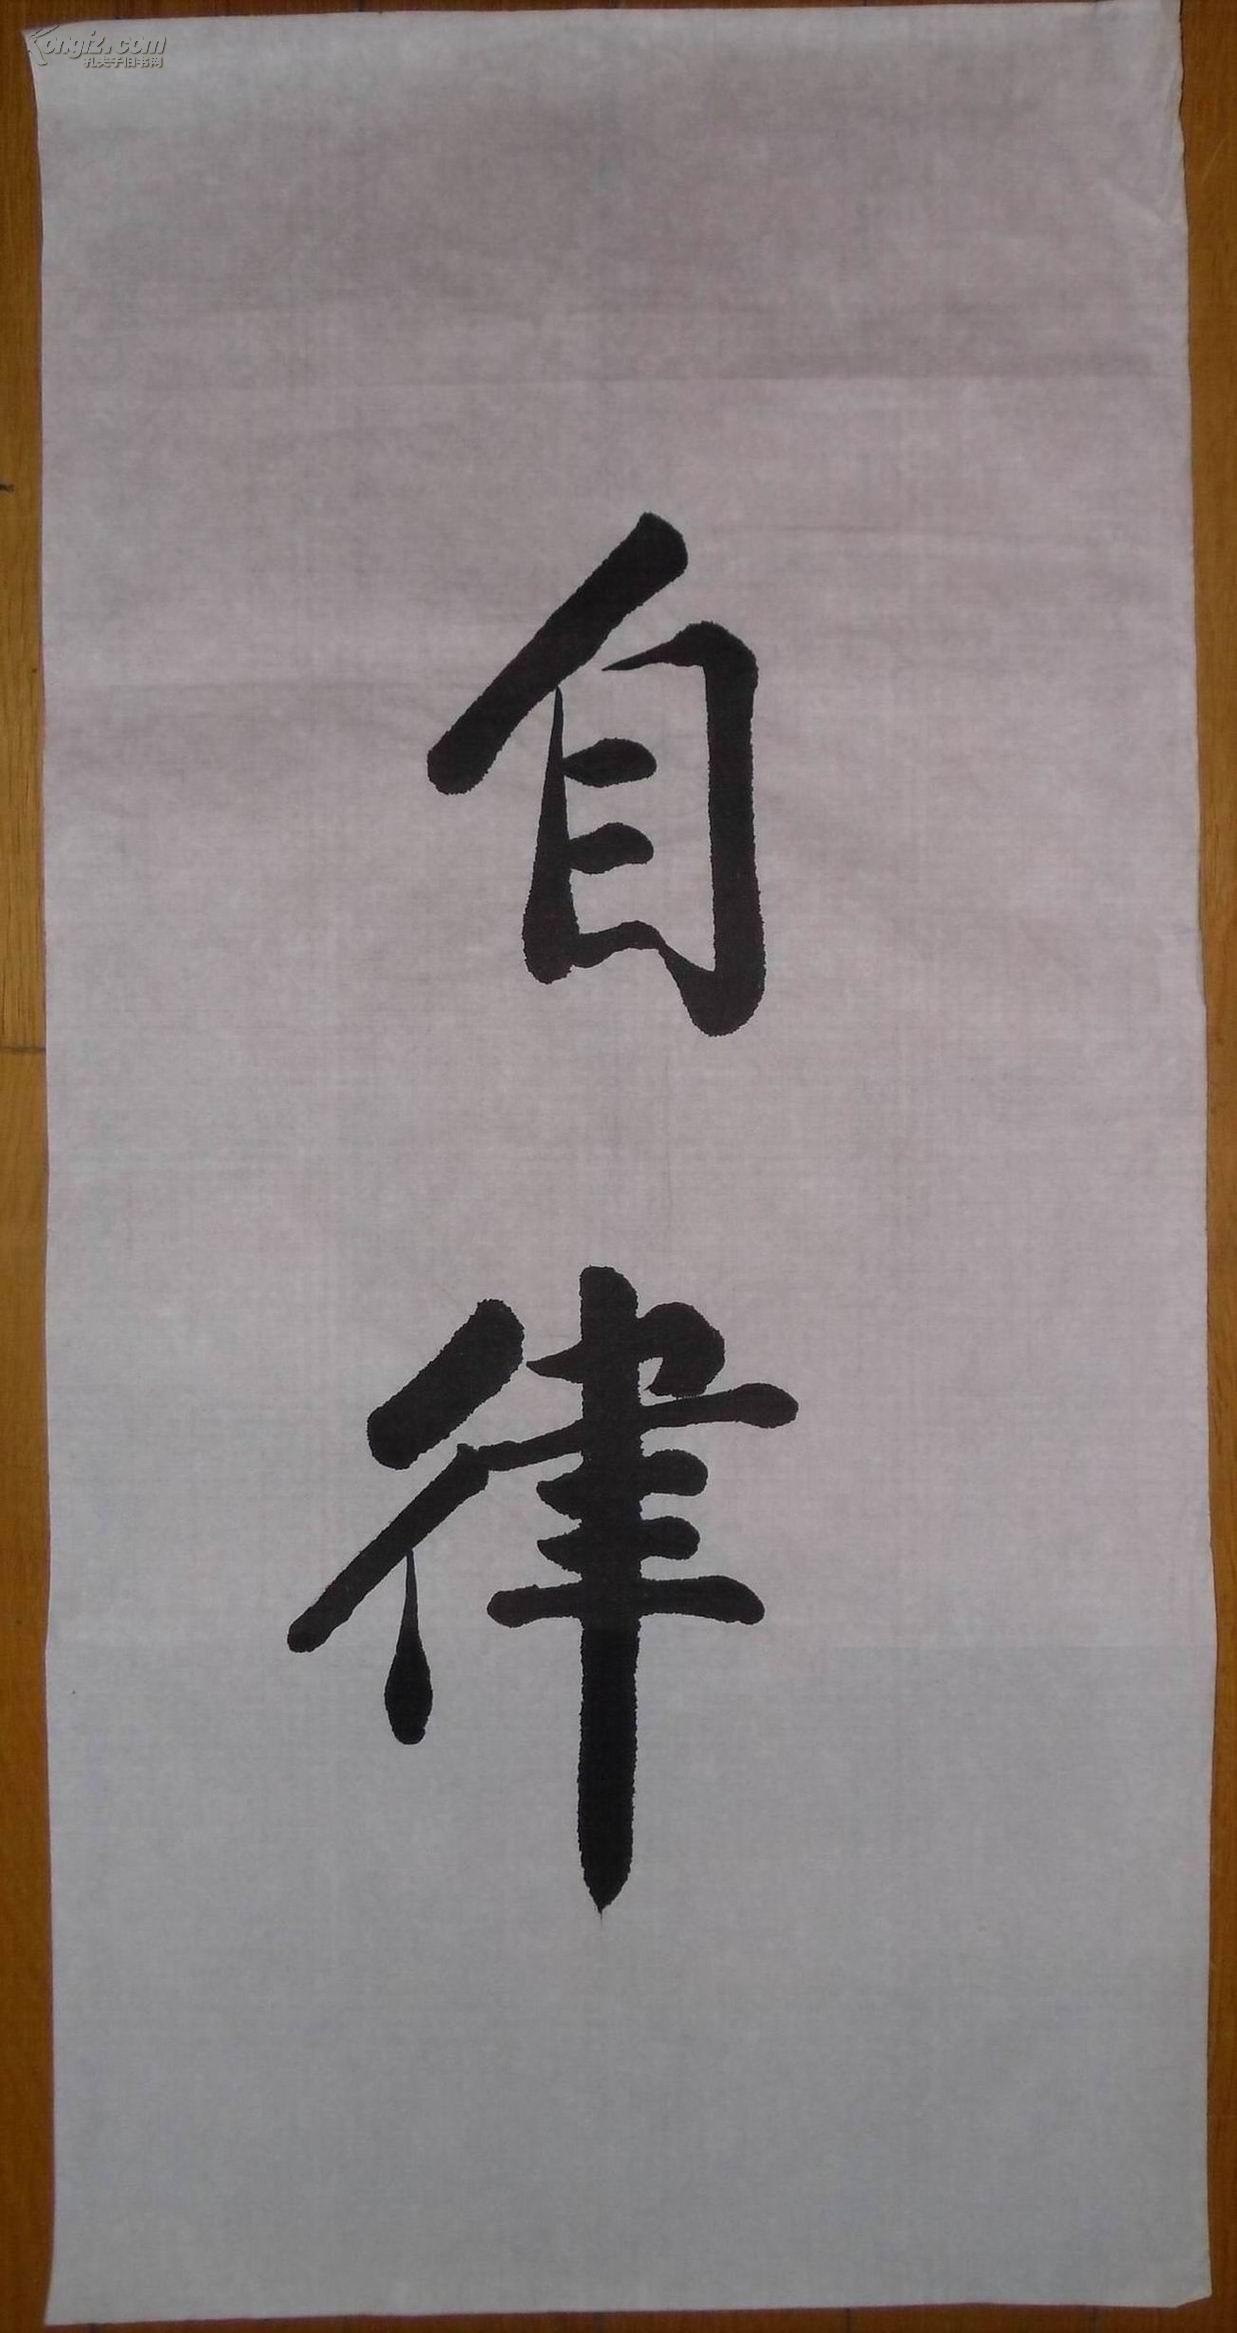 Kongfz.com
孔夫子旧书网
自
律